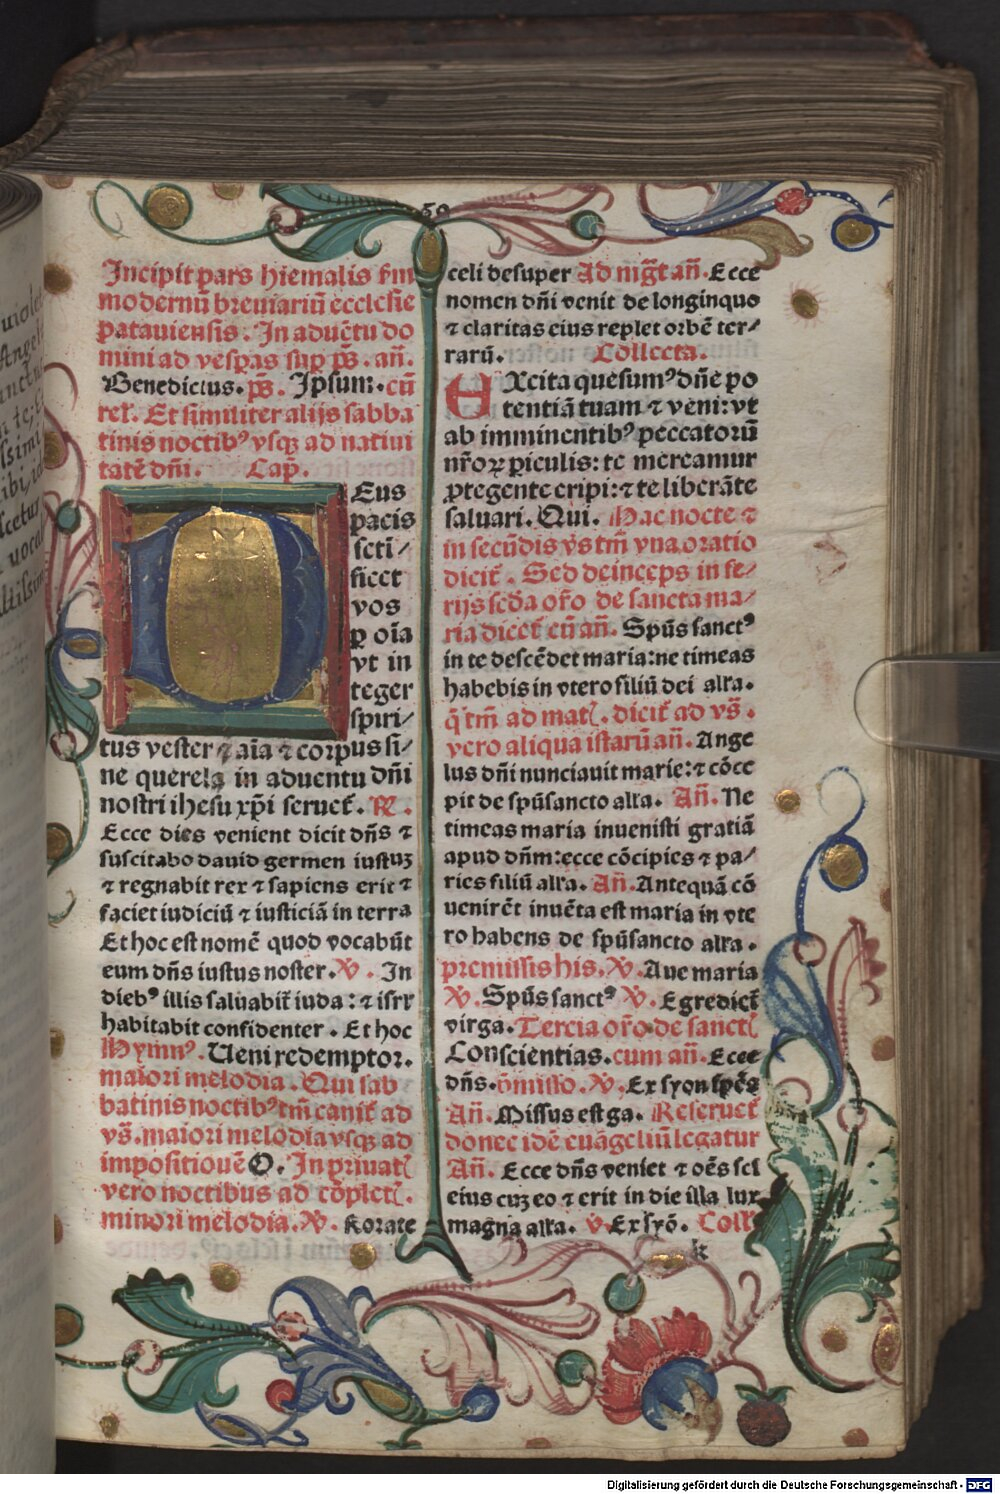 Incipit pars hiemalis ẜm
modernū breuiariū ecclesie
patauiensis. In aduētu do
mini ad vesp̄as sup p̄s. an̄.
Benedictus. p̄s. Ipsum. cū
rel̄. Et similiter alijs sabba
tinis noctibꝰ vsqꝫ ad natiui
tatē dn̄i. Cap̄.
DEus
pacis
scti/
ficet
vos
ꝑ oīa
vt in
teger
spiri/
tus vester ⁊ aīa ⁊ corpus si/
ne querela in aduentu dn̄i
nostri ihesu xp̄i seruet᷑. R̄.
Ecce dies venient dicit dn̄s ⁊
suscitabo dauid germen iustuꝫ
⁊ regnabit rex ⁊ sapiens erit ⁊
faciet iudiciū ⁊ iusticiā in terra
Et hoc est nomē quod vocabūt
eum dn̄s iustus noster. V̄. In
diebꝰ illis saluabit᷑ iuda: ⁊ isrl̄
habitabit confidenter. Et hoc
Hymnꝰ. Ueni redemptor.
maiori melodia. Qui sab
batinis noctibꝰ tm̄ canit᷑ ad
vs̄. maiori melodia vsqꝫ ad
impositiouē O. In priuat̄
vero noctibus ad cōplet̄.
minori melodia. V̄. Rorate
celi desuper Ad mgt̄ an̄. Ecce
nomen dn̄i venit de longinquo
⁊ claritas eius replet orbē ter/
rarū. Collecta.
EXcita quesumꝰ dn̄e po
tentiā tuam ⁊ veni: vt
ab imminentibꝰ peccatorū
nr̄oꝝ ꝑiculis: te mereamur
ꝓtegente eripi: ⁊ te liberāte
saluari. Qui. Hac nocte ⁊
in secūdis vs̄ tm̄ vna oratio
dicit᷑. Sed deinceps in fe/
rijs scd̄a or̄o de sancta ma/
ria dicet᷑ cū an̄. Spūs sanctꝰ
in te descēdet maria: ne timeas
habebis in vtero filiū dei alla.
q̄ tm̄ ad mat̄. dicit᷑ ad vs̄.
vero aliqua istarū an̄. Ange
lus dn̄i nunciauit marie: ⁊ cōce
pit de spūsancto alla. An̄. Ne
timeas maria inuenisti gratiā
apud dn̄m: ecce cōcipies ⁊ pa/
ries filiū alla. An̄. Antequā cō
uenirēt inuēta est maria in vte
ro habens de spūsancto alla.
premissis his. V̄. Aue maria
V̄. Spūs sanctꝰ V̄. Egrediet᷑
virga. Tercia or̄o de sanct̄
Conscientias. cum an̄. Ecce
dn̄s. V̄. Ex syon spēs
An̄. Missus est ga. Reseruet᷑
donec idē euāgeliū legatur
An̄. Ecce dn̄s veniet ⁊ oēs sci
eius cuꝫ eo ⁊ erit in die illa lux
magna alla. v̄. Ex syō. Coll̄
k
Digitalisierung gefördert durch die Deutsche Forschungsgemeinschaft - DFG